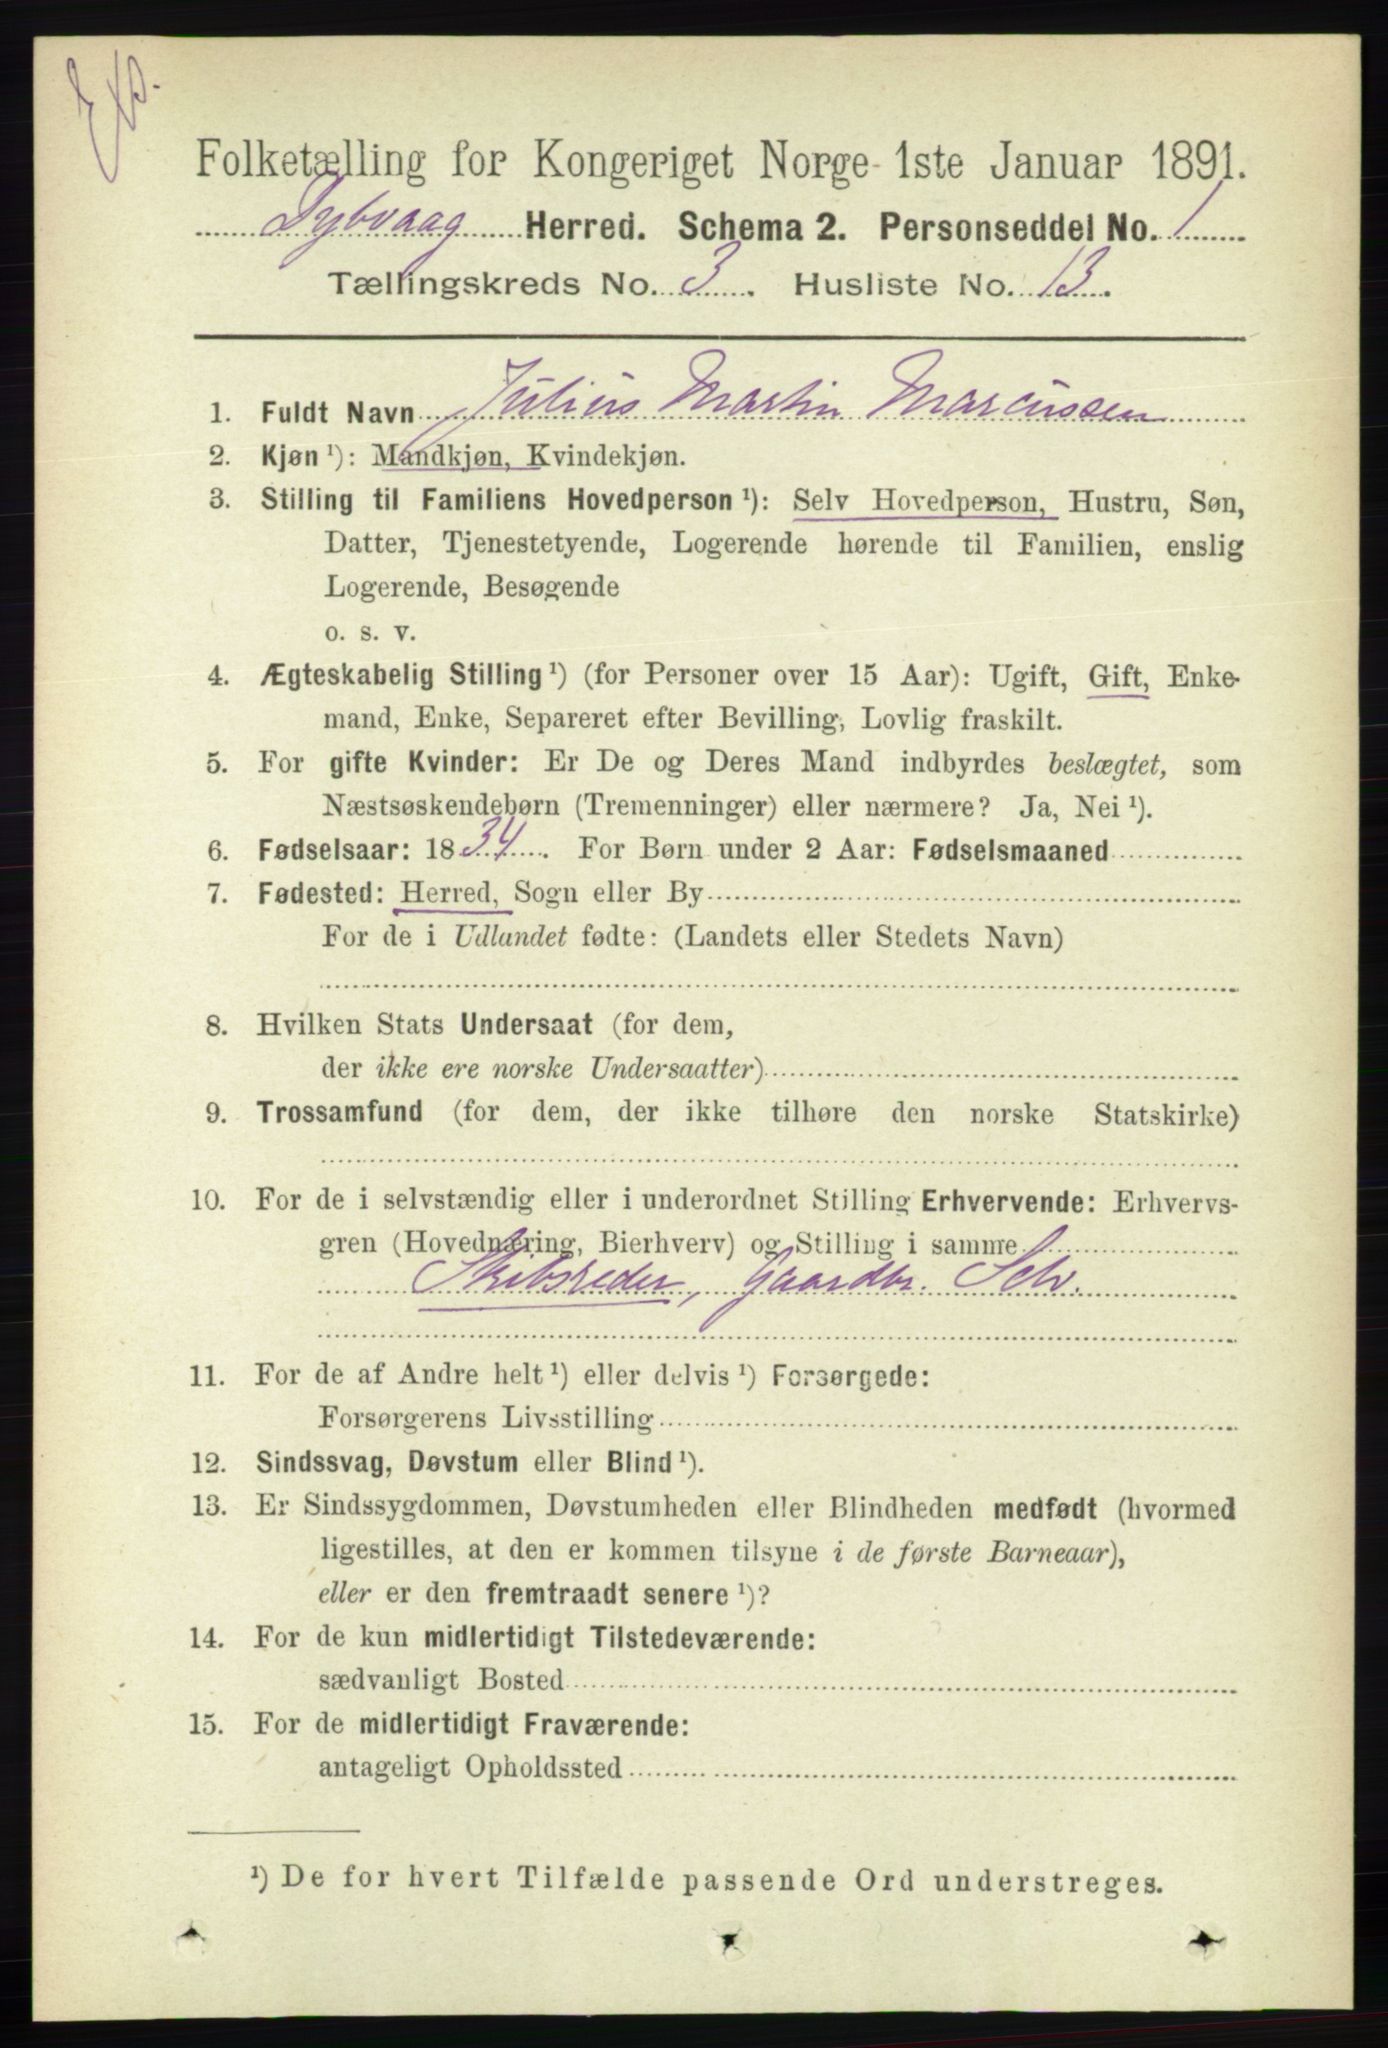 Folketælling for Kongeriget Norge 1ste Januar 1891.
Dybvaag Herred. Schema 2. Personseddel No. 1
Tællingskreds No. 3. Husliste No. 13.
1. Fuldt Navn Julius Martin Marcussen
2. Kjøn ¹): Mandkjøn, Kvindekjøn.
3. Stilling til Familiens Hovedperson ¹): Selv Hovedperson, Hustru, Søn,
Datter, Tjenestetyende, Logerende hørende til Familien, enslig
Logerende, Besøgende
o. s. v.
4. Ægteskabelig Stilling ¹) (for Personer over 15 Aar): Ugift, Gift, Enke-
mand, Enke, Separeret efter Bevilling, Lovlig fraskilt.
5. For gifte Kvinder: Er De og Deres Mand indbyrdes beslægtet, som
Næstsøskendebørn (Tremenninger) eller nærmere? Ja, Nei ¹).
6. Fødselsaar: 1834. For Børn under 2 Aar: Fødselsmaaned
7. Fødested: Herred, Sogn eller By
For de i Udlandet fødte: (Landets eller Stedets Navn)
8. Hvilken Stats Undersaat (for dem,
der ikke ere norske Undersaatter)
9. Trossamfund (for dem, der ikke tilhøre den norske Statskirke)
10. For de i selvstændig eller i underordnet Stilling Erhvervende: Erhvervs-
gren (Hovednæring, Bierhverv) og Stilling i samme
Skibsreder, Gaardbr. Selv.
11. For de af Andre helt ¹) eller delvis ¹) Forsørgede:
Forsørgerens Livsstilling
12. Sindssvag, Døvstum eller Blind ¹).
13. Er Sindssygdommen, Døvstumheden eller Blindheden medfødt (hvormed
ligestilles, at den er kommen tilsyne i de første Barneaar),
eller er den fremtraadt senere ¹)?
14. For de kun midlertidigt Tilstedeværende:
sædvanligt Bosted
15. For de midlertidigt Fraværende:
antageligt Opholdssted
¹) De for hvert Tilfælde passende Ord understreges.